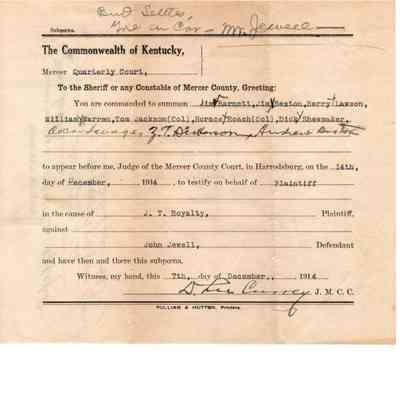 Bud Settles,
Subpœna. One in Cor – Mr. Jewell –
The Commonwealth of Kentucky,
Mercer Quarterly Court,
To the Sheriff or any Constable of Mercer County, Greeting:
You are commanded to summon Jim Barnett, Jim Sexton, Harry Lawson,
William Warren, Tom Jackson(Col), Horace Roach(Col), Dick Shewmaker,
Savage, Z.T. Dickerson, Andrew
to appear before me, Judge of the Mercer County Court, in Harrodsburg, on the 14th,
day of December, 1914, to testify on behalf of Plaintiff
in the cause of J. T. Royalty, Plaintiff,
against
John Jewell, Defendant
and have then and there this subpœna.
Witness, my hand, this 7th, day of December,, 1914
D. Lee Currey J. M. C. C.
PULLIAM & NUTTER, Printers.